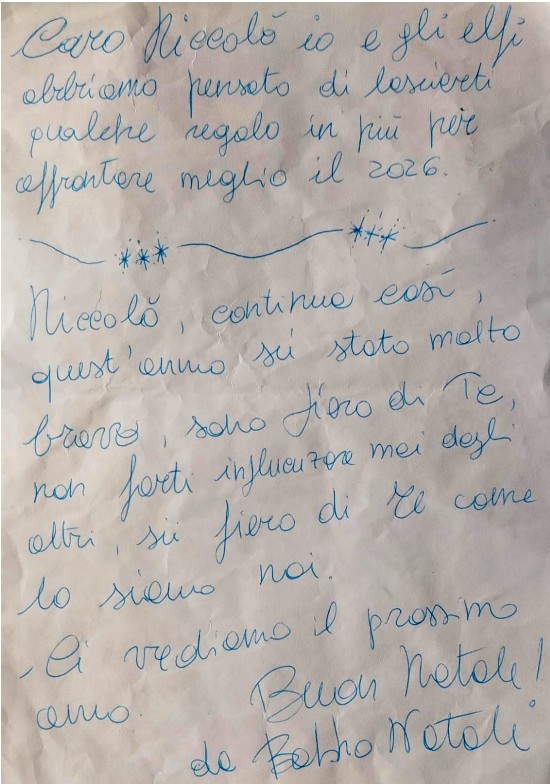 Caro Niccolò io e gli elfi
abbiamo pensato di lasciarti
qualche regalo in più per
affrontare meglio il 2026.
Niccolò, continua così,
quest'anno sei stato molto
bravo, sono fiero di Te,
non farti influenzare mai dagli
altri, sii fiero di te come
lo siamo noi.
Ci vediamo il prossimo
anno. Buon Natale!
da Babbo Natale